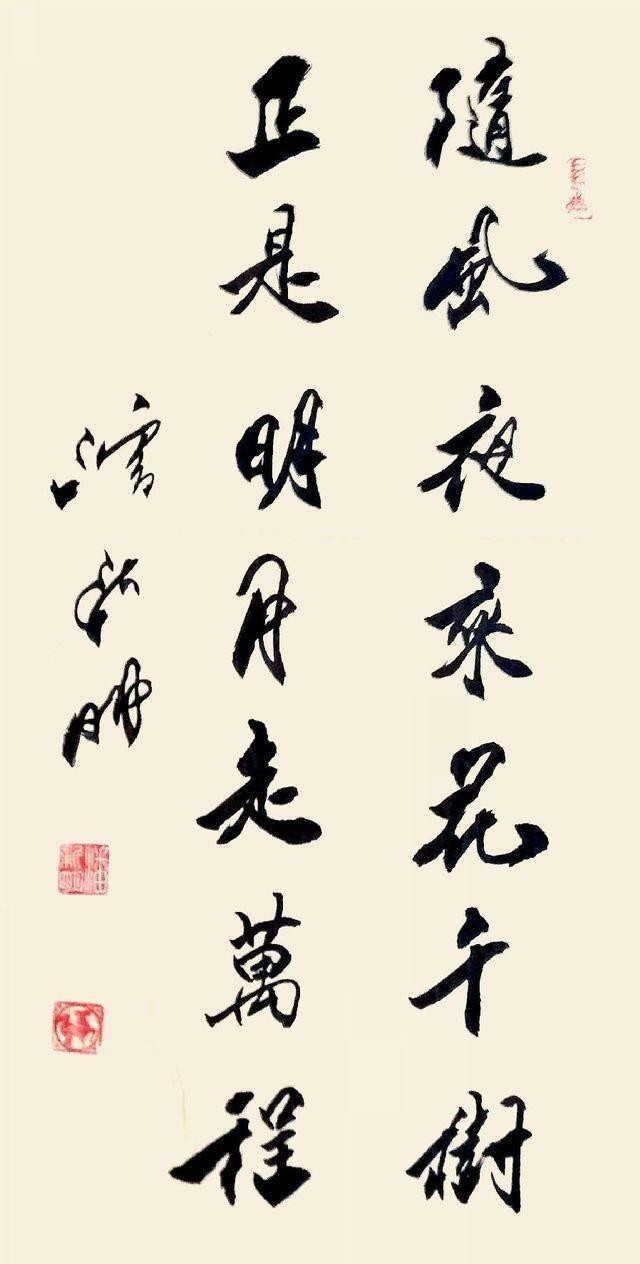 隨風夜來花千樹
正是明月走萬程
潘新明